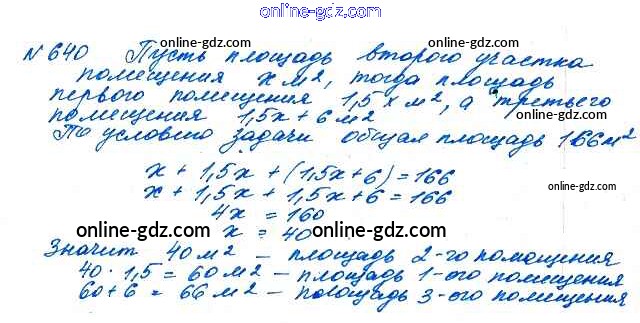 online-gdz.com
N 640 Пусть площадь второго участка
online-gdz.com online-gdz.com
помещения x м², тогда площадь
первого помещения 1,5x м², а третьего
помещения 1,5x + 6 м²
По условию задачи общая площадь 166 м²
x + 1,5x + (1,5x + 6) = 166
x + 1,5x + 1,5x + 6 = 166
online-gdz.com
4x = 160
online-gdz.com online-gdz.com
x = 40
Значит 40 м² – площадь 2-го помощения
40 · 1,5 = 60 м² – площадь 1-ого помещения
60 + 6 = 66 м² – площадь 3-ого помещения
online-gdz.com online-gdz.com